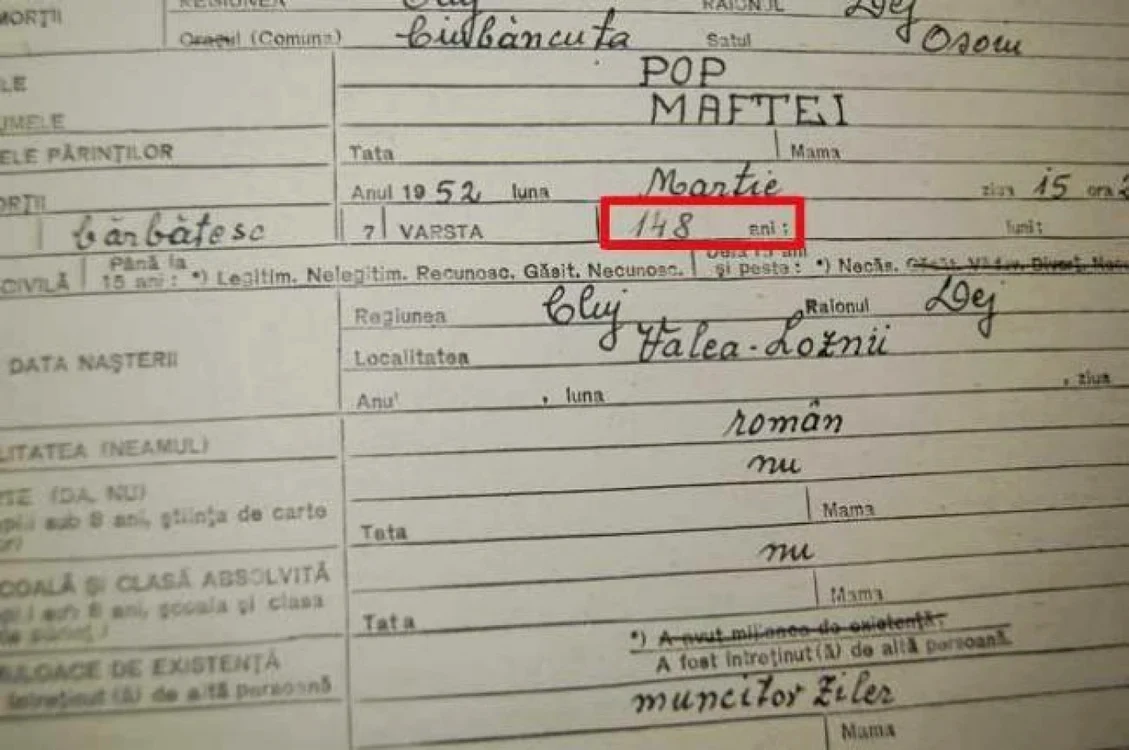 MORȚII REGIUNEA Cluj RAIONUL Dej
Orașul (Comuna) Ciubăncuța Satul Osoiu
POP
UMELE MAFTEI
ELE PĂRINȚILOR Tata Mama
Anul 1952 luna Martie ziua 15 ora
bărbătesc 7 VARSTA 148 ani; luni;
CIVILĂ Până la 15 ani: *) Legitim. Nelegitim. Recunosc. Găsit. Necunosc. și peste: *) Necăs.
Regiunea Cluj Raionul Dej
DATA NAȘTERII Localitatea Valea-Loznii
Anu' , luna , ziua
LITATEA (NEAMUL) român
TE (DA, NU) nu
sub 8 ani, știința de carte Tata Mama
COALĂ ȘI CLASĂ ABSOLVITĂ nu
sub 8 ani, școala și clasa Tata Mama
*) A avut mijloace de existență;
A fost întreținut(ă) de altă persoană.
JLOACE DE EXISTENȚĂ
întreținut (ă) de altă persoană muncitor Ziler
Mama